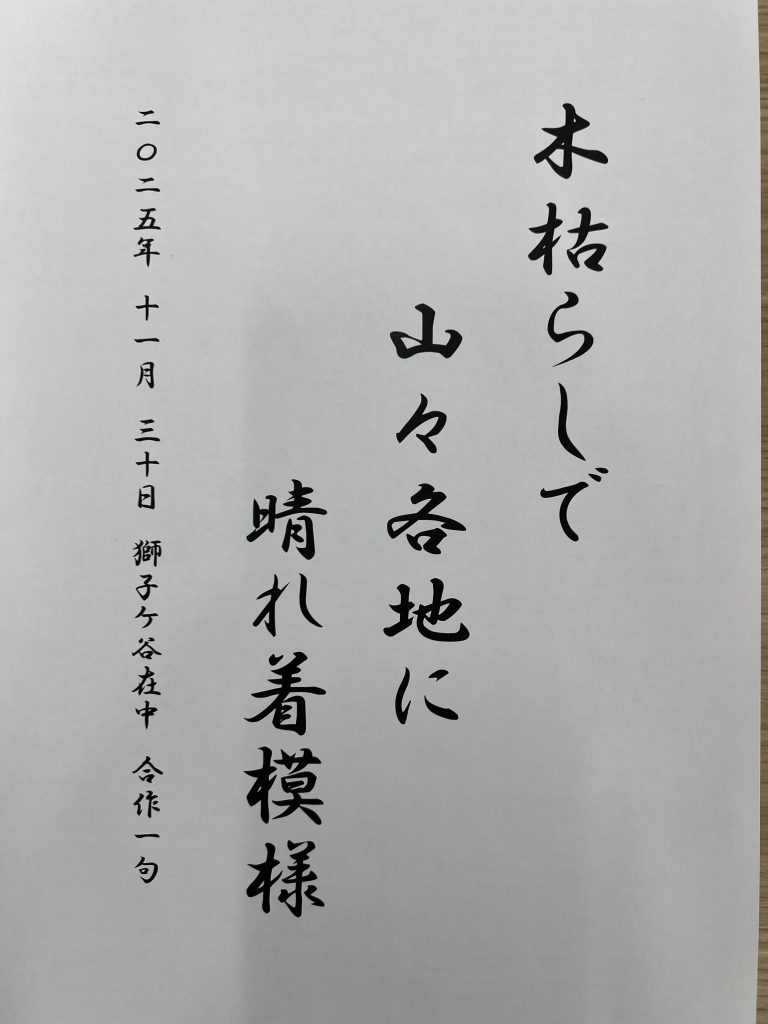 木枯らしで
山々各地に
晴れ着模様
二〇二五年 十一月 三十日 獅子ケ谷在中 合作一句